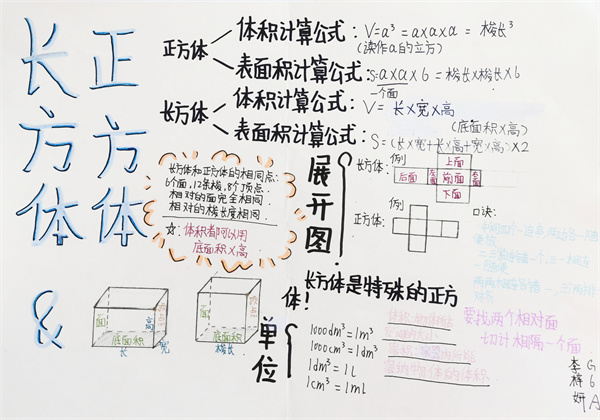 长方体
正方体
&
正方体
体积计算公式：V=a³=a×a×a=棱长³
（读作a的立方）
表面积计算公式：S=a×a×6=棱长×棱长×6
一个面
长方体
体积计算公式：V=长×宽×高
（底面积×高）
表面积计算公式：S=（长×宽+长×高+宽×高）×2
长方体和正方体的相同点：
6个面，12条棱，8个顶点.
相对的面完全相同.
相对的棱长度相同.
☆：体积都可以用
底面积×高
展开图
长方体：
例
上面
后面 左面 前面 右面
下面
正方体：
例
口诀：
长方体是特殊的正方
体！
面
顶点
高
底面积
长
宽
面
顶点
底面积
棱长
单位
1000dm³=1m³
1000cm³=1dm³
1dm³=1L
1cm³=1ml
要找两个相对面
切计相隔一个面
G6A